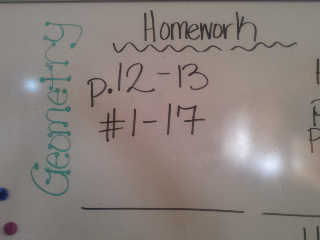 Geometry
Homework
p.12-13
#1-17